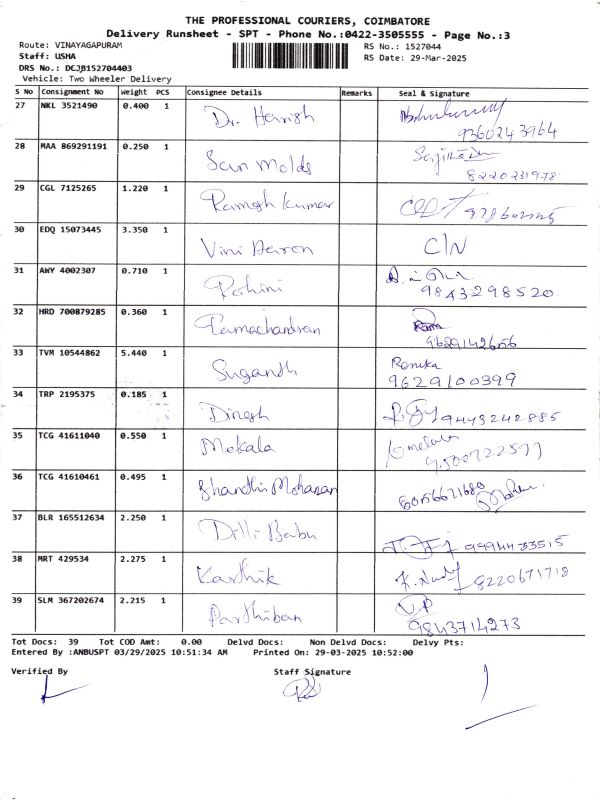 THE PROFESSIONAL COURIERS, COIMBATORE
Delivery Runsheet - SPT - Phone No.:0422-3505555 - Page No.:3
Route: VINAYAGAPURAM RS No.: 1527044
Staff: USHA RS Date: 29-Mar-2025
DRS No.: DCJB152704403
Vehicle: Two Wheeler Delivery
S No Consignment No Weight PCS Consignee Details Remarks Seal & Signature
27 NKL 3521490 0.400 1 Dr. Harish
9360243964
28 MAA 869291191 0.250 1 San Molds
8220231978
29 CGL 7125265 1.220 1 Ramesh Kumar
30 EDQ 15073445 3.350 1 Vini Aaron C/N
31 AWY 4002307 0.710 1 Rohini
9843298520
32 HRD 700879285 0.360 1 Ramachandran Ram
9629142656
33 TVM 10544862 5.440 1 Sugandh Renuka
9629100399
34 TRP 2195375 0.185 1 Dinesh 9443242885
35 TCG 41611040 0.550 1 Mekala
9500722577
36 TCG 41610461 0.495 1 Shanthi Mohanan
8056671680
37 BLR 165512634 2.250 1 Dilli Babu 9994433515
38 MRT 429534 2.275 1 Karthik 8220671718
39 SLM 367202674 2.215 1 Parthiban V.P
9843714273
Tot Docs: 39 Tot COD Amt: 0.00 Delvd Docs: Non Delvd Docs: Delvy Pts:
Entered By :ANBUSPT 03/29/2025 10:51:34 AM Printed On: 29-03-2025 10:52:00
Verified By Staff Signature